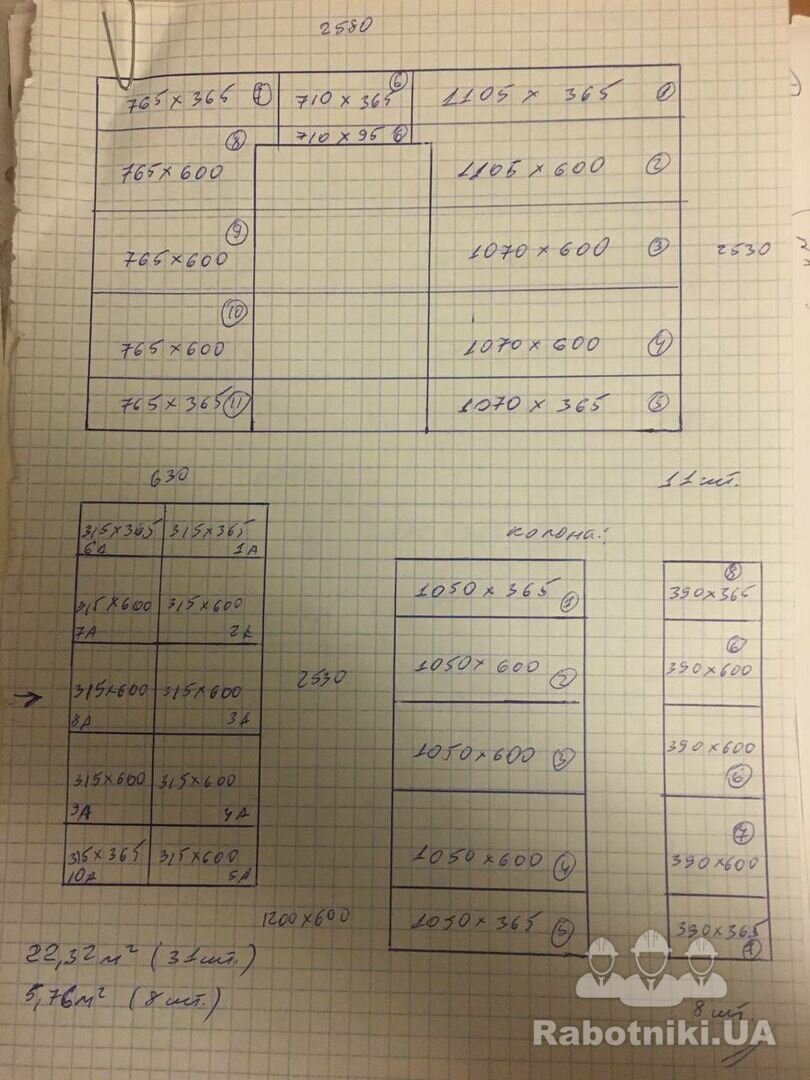 2580
765 x 365 7 710 x 365 6 1105 x 365 1
710 x 95 6
8
765 x 600 1105 x 600 2
9
765 x 600 1070 x 600 3 2530
10
765 x 600 1070 x 600 4
765 x 365 11 1070 x 365 5
630 11 шт.
колона:
315 x 365 315 x 365
6А 1А
315 x 600 315 x 600
7А 2А
315 x 600 315 x 600
8А 3А
315 x 600 315 x 600
9А 4А
315 x 365 315 x 600
10А 5А
2530
1050 x 365 1
1050 x 600 2
1050 x 600 3
1050 x 600 4
1050 x 365 5
8
390 x 365
6
390 x 600
390 x 600
6
7
390 x 600
390 x 365
7
1200 x 600
22,32 м² (31 шт.)
5,76 м² (8 шт.)
8 шт
Rabotniki.UA